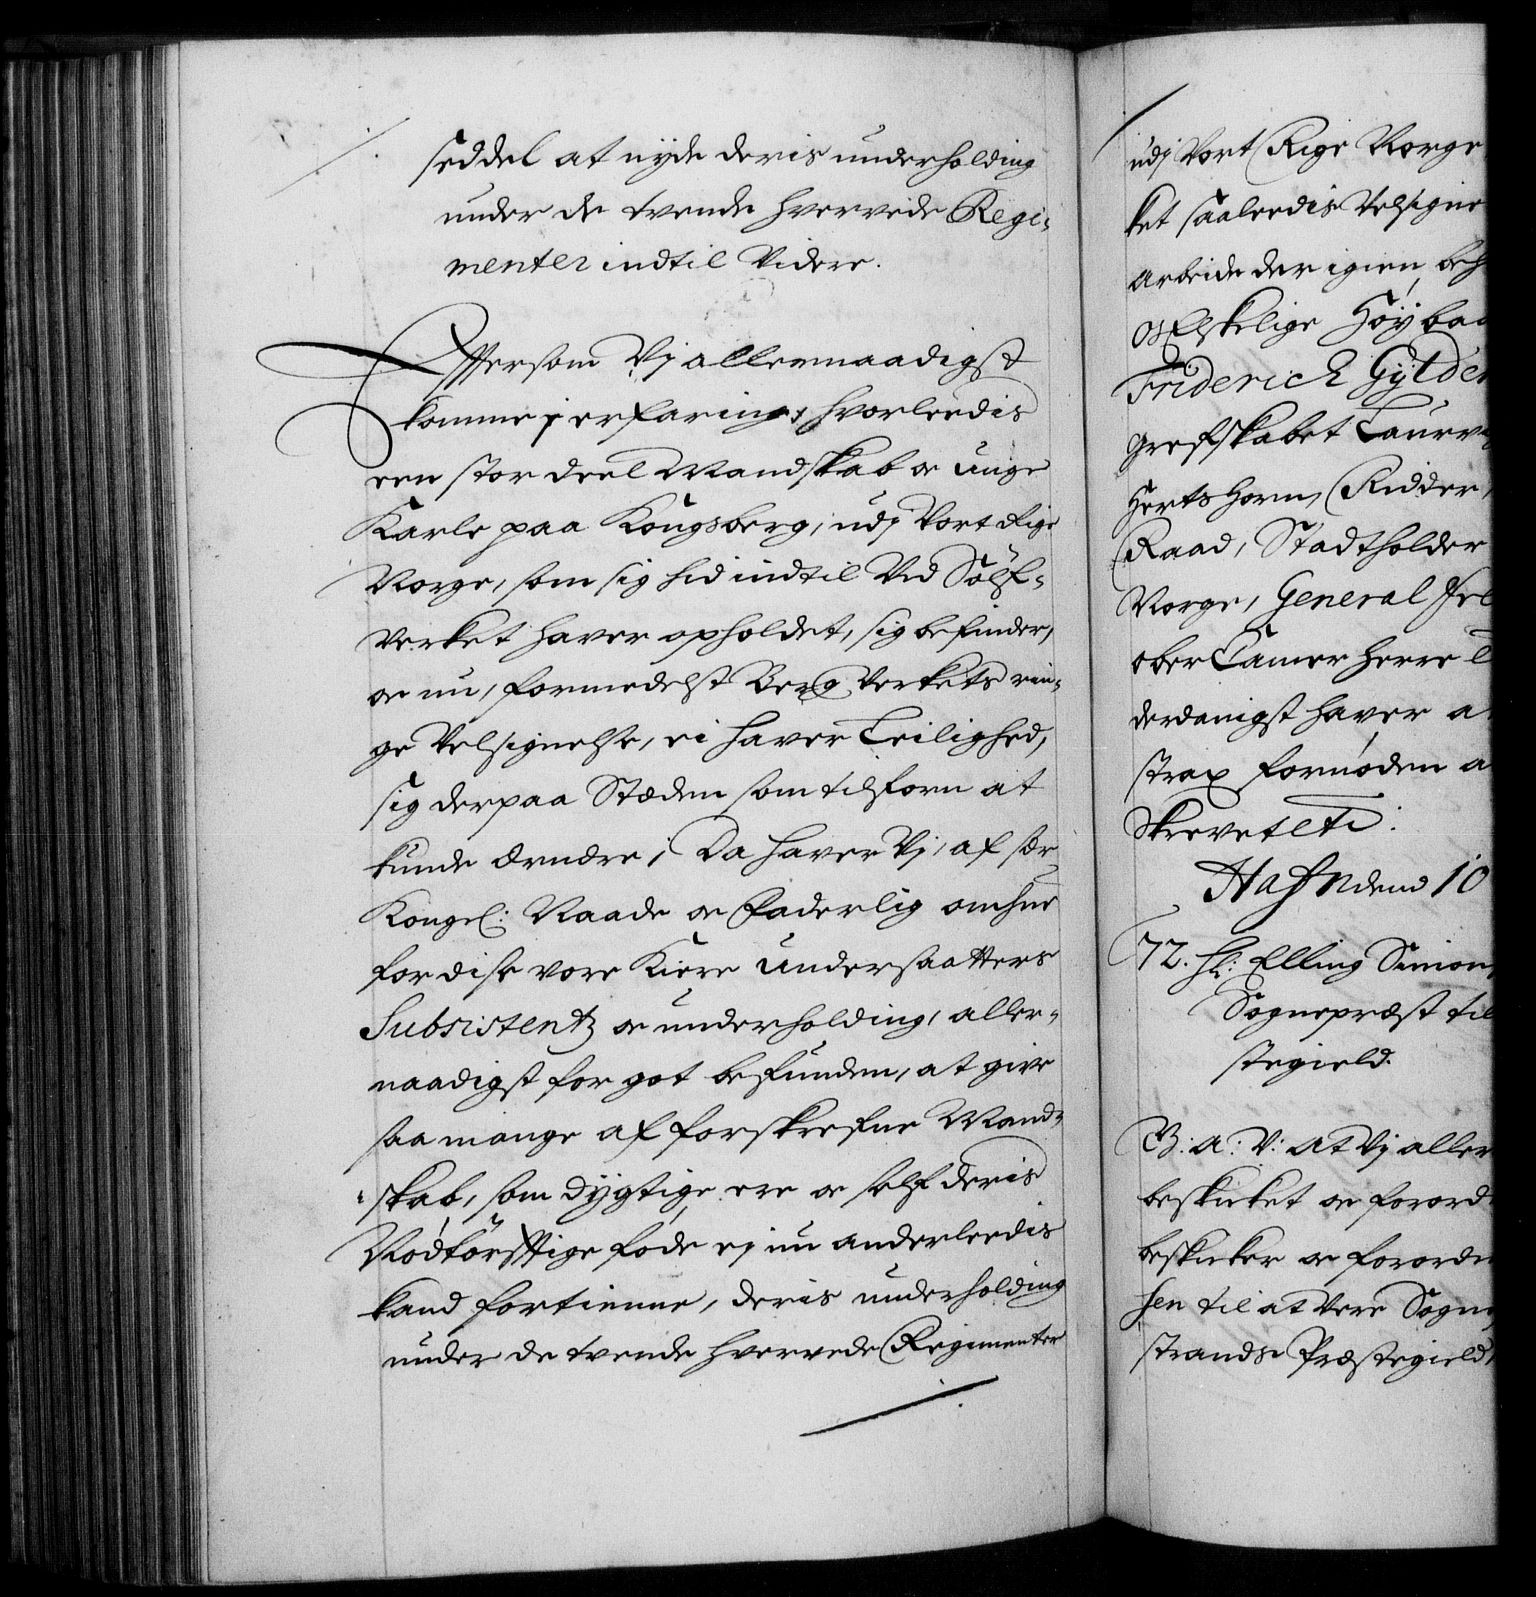 seddel at nyde deris underholding
under de tvende hvervede Regi-
menter indtil Videre.
Eftersom Vj allernaadigst
kommer j erfaring, hvorleedis
een stor deel Mandskab oc unge
Karle paa Kongsberg, udj Vort Rige
Norge, som sig hid indtil Ved Sølf-
Verket haver opholdet, sig befinder,
oc nu, formedelst Berg Verkets rin-
ge Velsignelse, ei haver Leilighed,
sig der paa Stæden som tilforn at
kunde ernære; Da haver Vj, af sær
Kongel: Naade oc Faderlig omhue
for disse vore Kiere Undersaatters
Subsistentz oc underholding, aller-
naadigst for got befunden, at give
saa mange af forskrefne Mand-
skab, som dygtige ere oc self deris
Nødtørfftige føde ej nu anderleedis
kand fortienne, deris underholding
under de tvende hvervede Regimenter
udj Vort Rige Norge
ket saaleedis Velsigne
Arbeide der igien beh
os Elskelige Høybaa
Friderich Gylden
Grefskabet Laurv
Hertzhorn, Ridder,
Raad, Stadtholder
Norge, General Fel
ober Camer Herre
derdanigst haver a
strax fornøden a
Skrevet etc:
Hafn dend 10
72. Hr: Elling Simon
Sognepræst til
stegield.
G: A: V: At Vj aller
beskicket oc forord
beskicker oc forordn
sen til at Vere Sogn
strands Præstegield,